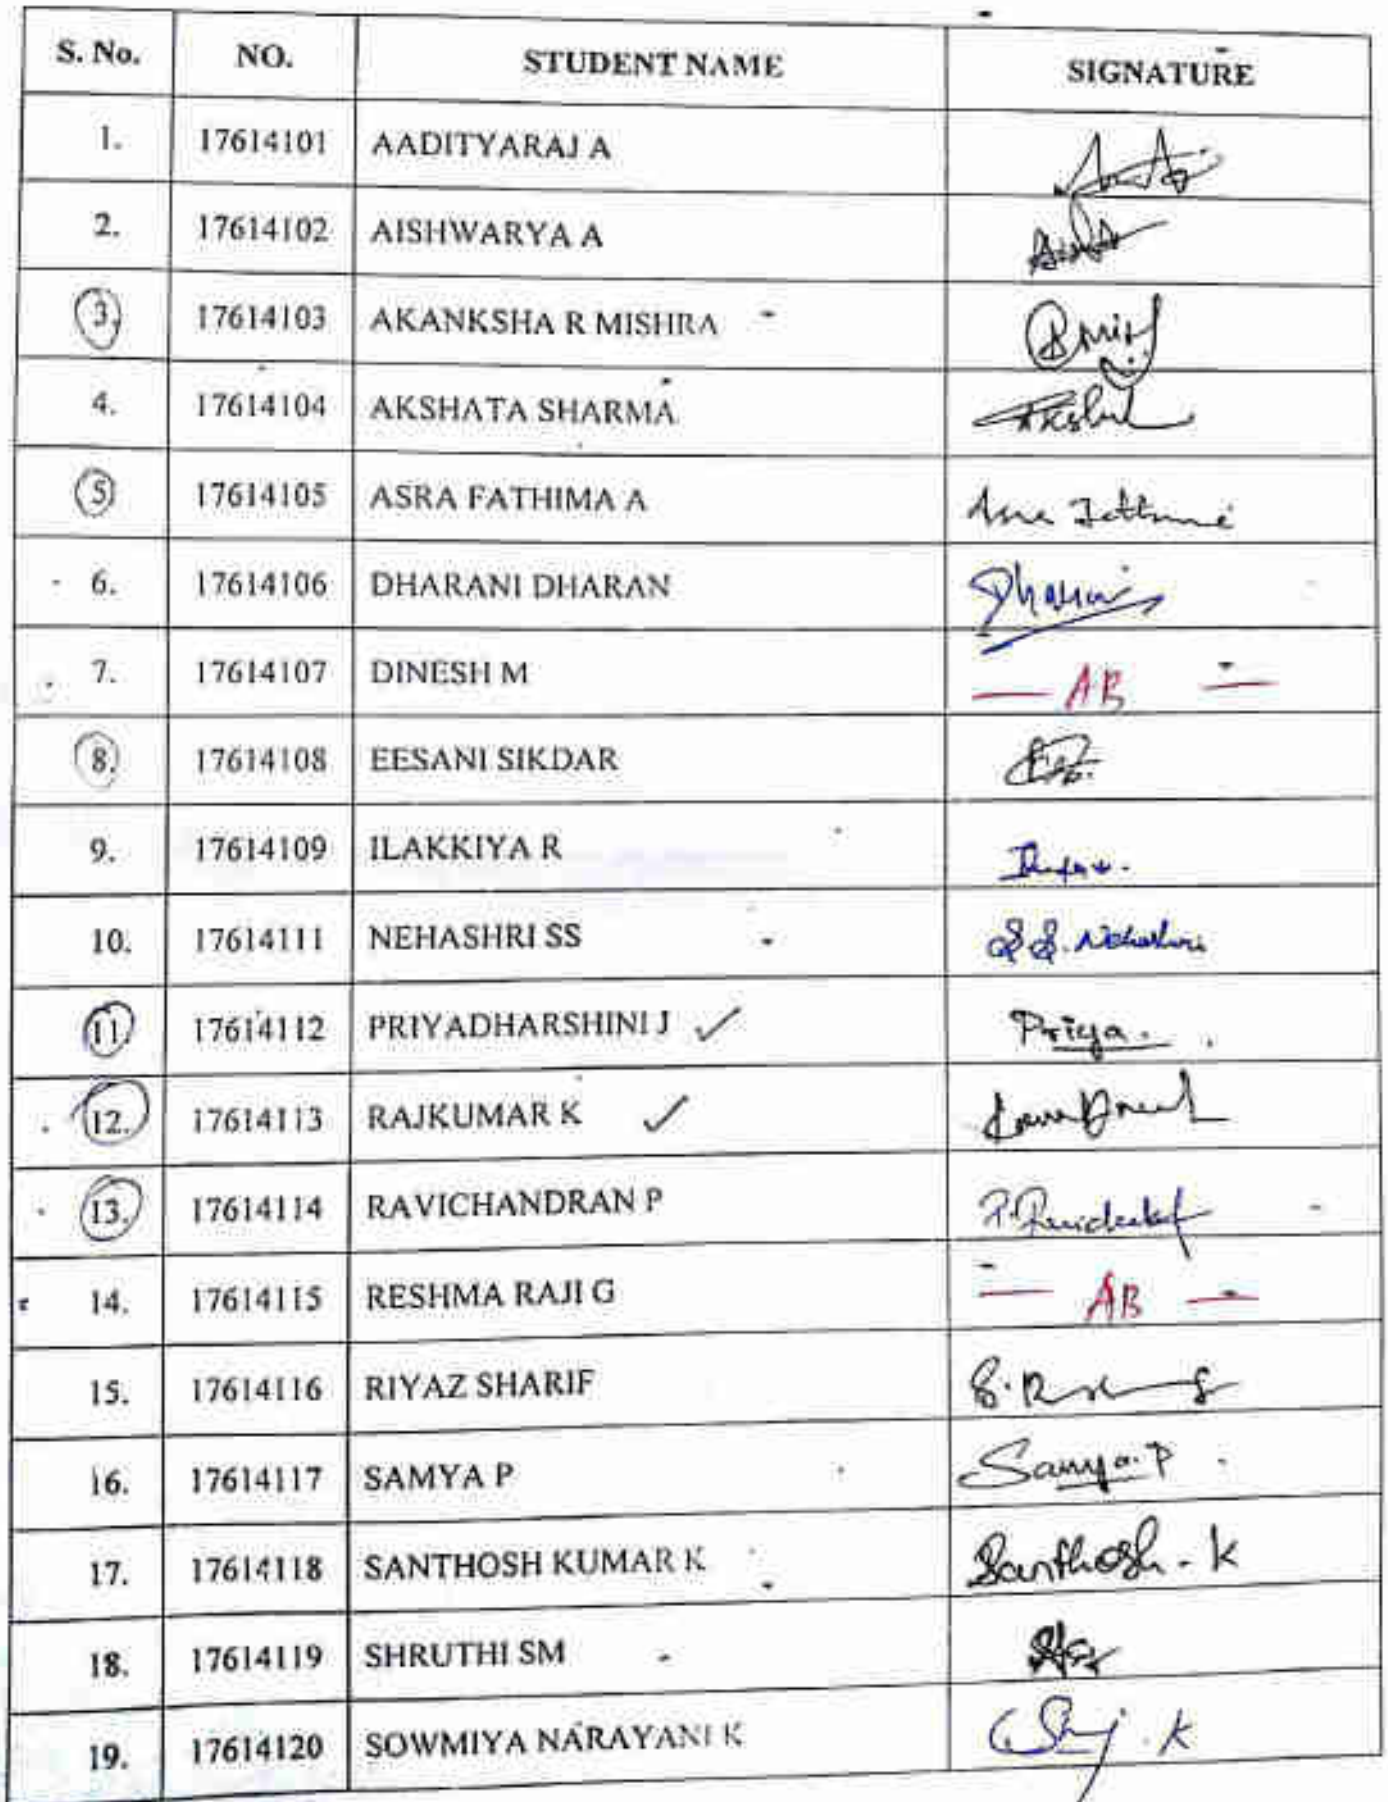 S. No. NO. STUDENT NAME SIGNATURE
1. 17614101 AADITYARAJ A
2. 17614102 AISHWARYA A
3. 17614103 AKANKSHA R MISHRA
4. 17614104 AKSHATA SHARMA
5 17614105 ASRA FATHIMA A
6. 17614106 DHARANI DHARAN
7. 17614107 DINESH M — AB —
8. 17614108 EESANI SIKDAR
9. 17614109 ILAKKIYA R
10. 17614111 NEHASHRI SS S S. Nehashri
11. 17614112 PRIYADHARSHINI J ✓ Priya.
12. 17614113 RAJKUMAR K ✓
13. 17614114 RAVICHANDRAN P
14. 17614115 RESHMA RAJI G — AB —
15. 17614116 RIYAZ SHARIF
16. 17614117 SAMYA P Samya. P
17. 17614118 SANTHOSH KUMAR K Santhosh - K
18. 17614119 SHRUTHI SM
19. 17614120 SOWMIYA NARAYANI K